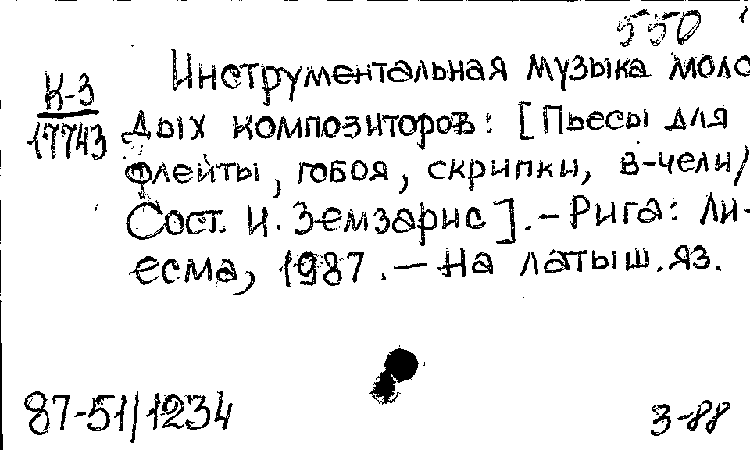 550
К-3
17743
Инструментальная музыка моло
дых композиторов: [Пьесы для
флейты, гобоя, скрипки, в-чели/
Сост. И. Земзарис]. — Рига: Ли-
есма, 1987. — На латыш. яз.
87-51/1234
3-88